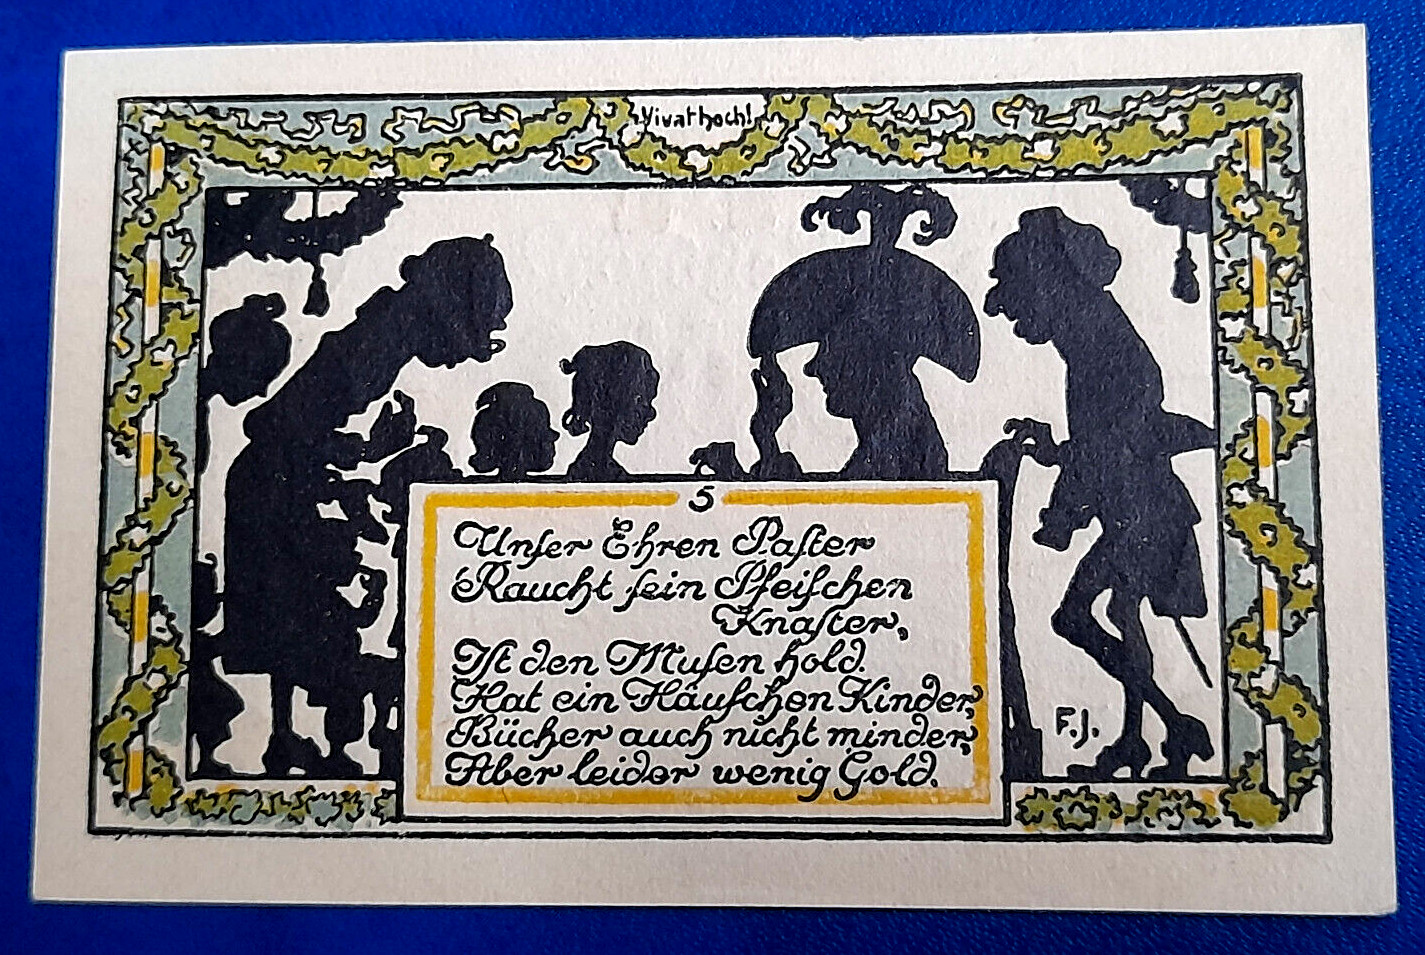 Vivat hoch!
5
Unſer Ehren Paſter
Raucht ſein Pfeifchen
Knaſter,
Iſt den Muſen hold.
Hat ein Häufchen Kinder,
Bücher auch nicht minder,
Aber leider wenig Gold.
F.J.